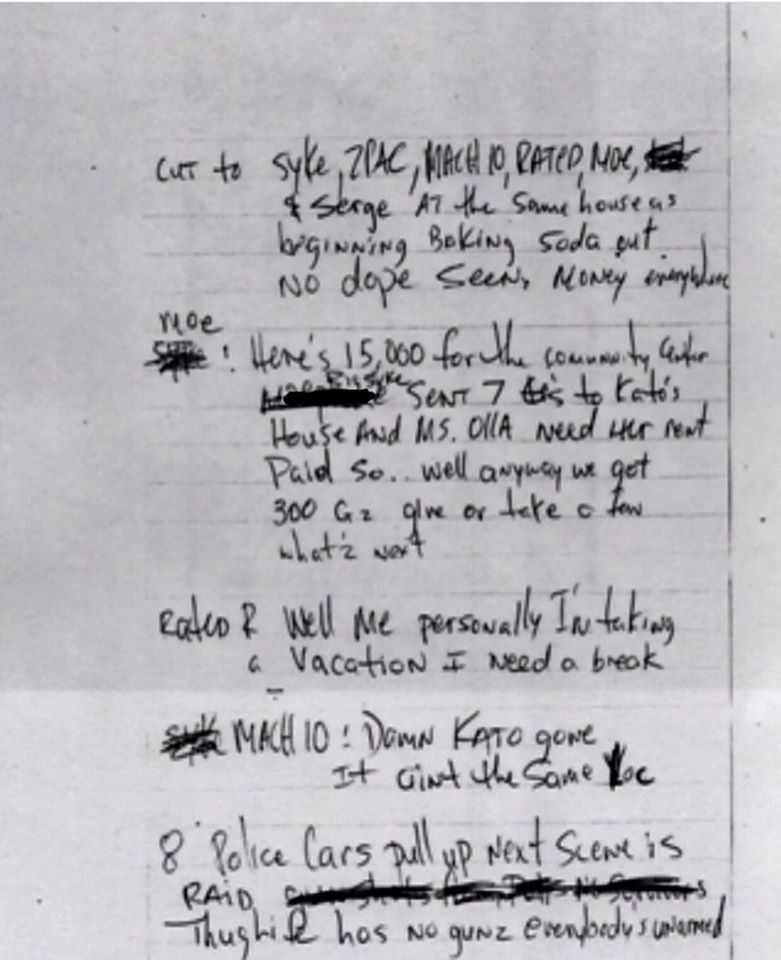 CUT to Syke, 2PAC, MACH 10, RATED, MOE,
& Serge AT the same house as
beginning Baking Soda out
NO dope Seen, Money everywhere
Moe
: Here's 15,000 for the community Center
Big Syke SENT 7 to Kato's
House AND MS. OllA Need Her rent
Paid So.. well anyway we got
300 Gz give or take a few
what'z next
Rated R Well Me personally I'm taking
a Vacation I Need a break
MACH 10: Damn KATO gone
It aint the Same Loc
8 Police Cars pull up Next Scene is
RAID
ThugLife has no gunz everybody's unarmed